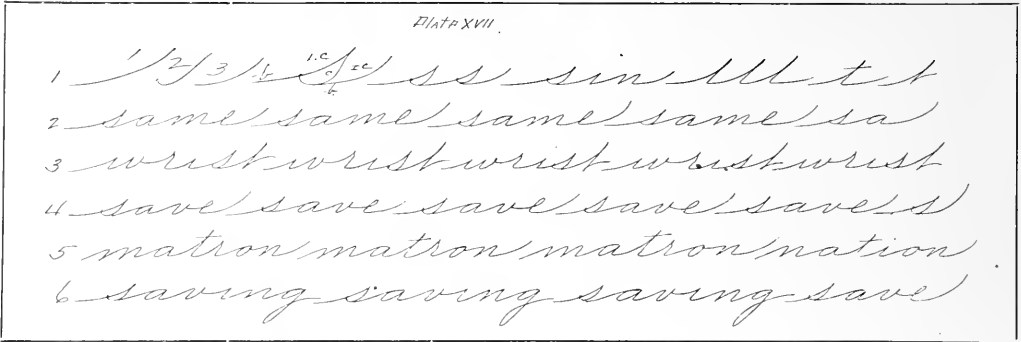 Plate XVII.
1 1 2 3 b 1.C C 2C b s s sin t t
2 same same same same sa
3 wrist wrist wrist wrist wrist
4 save save save save save s
5 matron matron matron nation
6 saving saving saving save